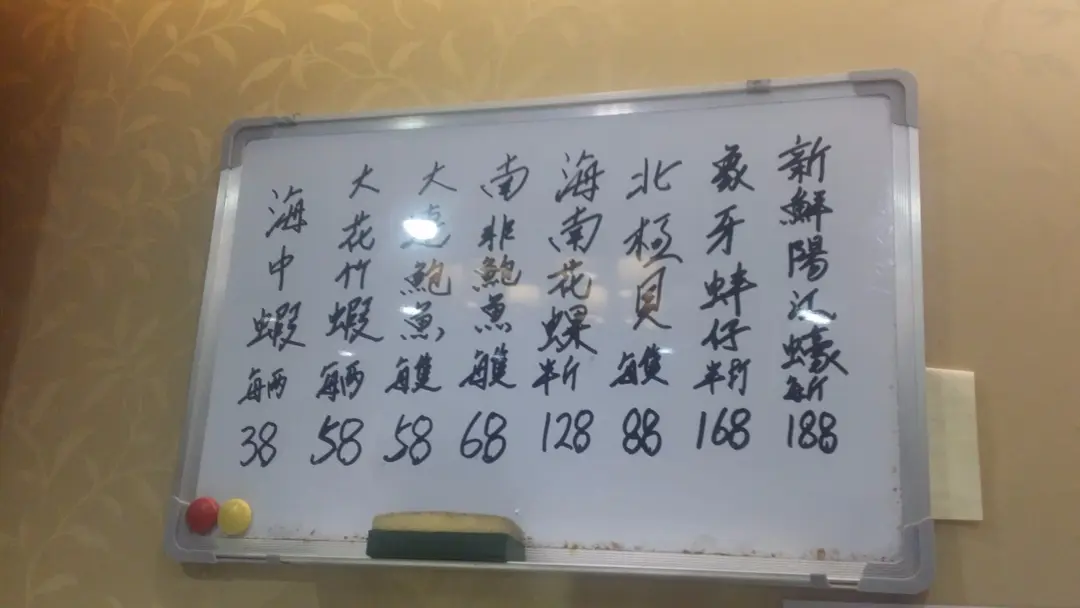 新鮮陽江蠔每斤188
象牙蚌仔半斤168
北極貝每隻88
海南花螺半斤128
南非鮑魚每隻68
大連鮑魚每隻58
大花竹蝦每兩58
海中蝦每兩38